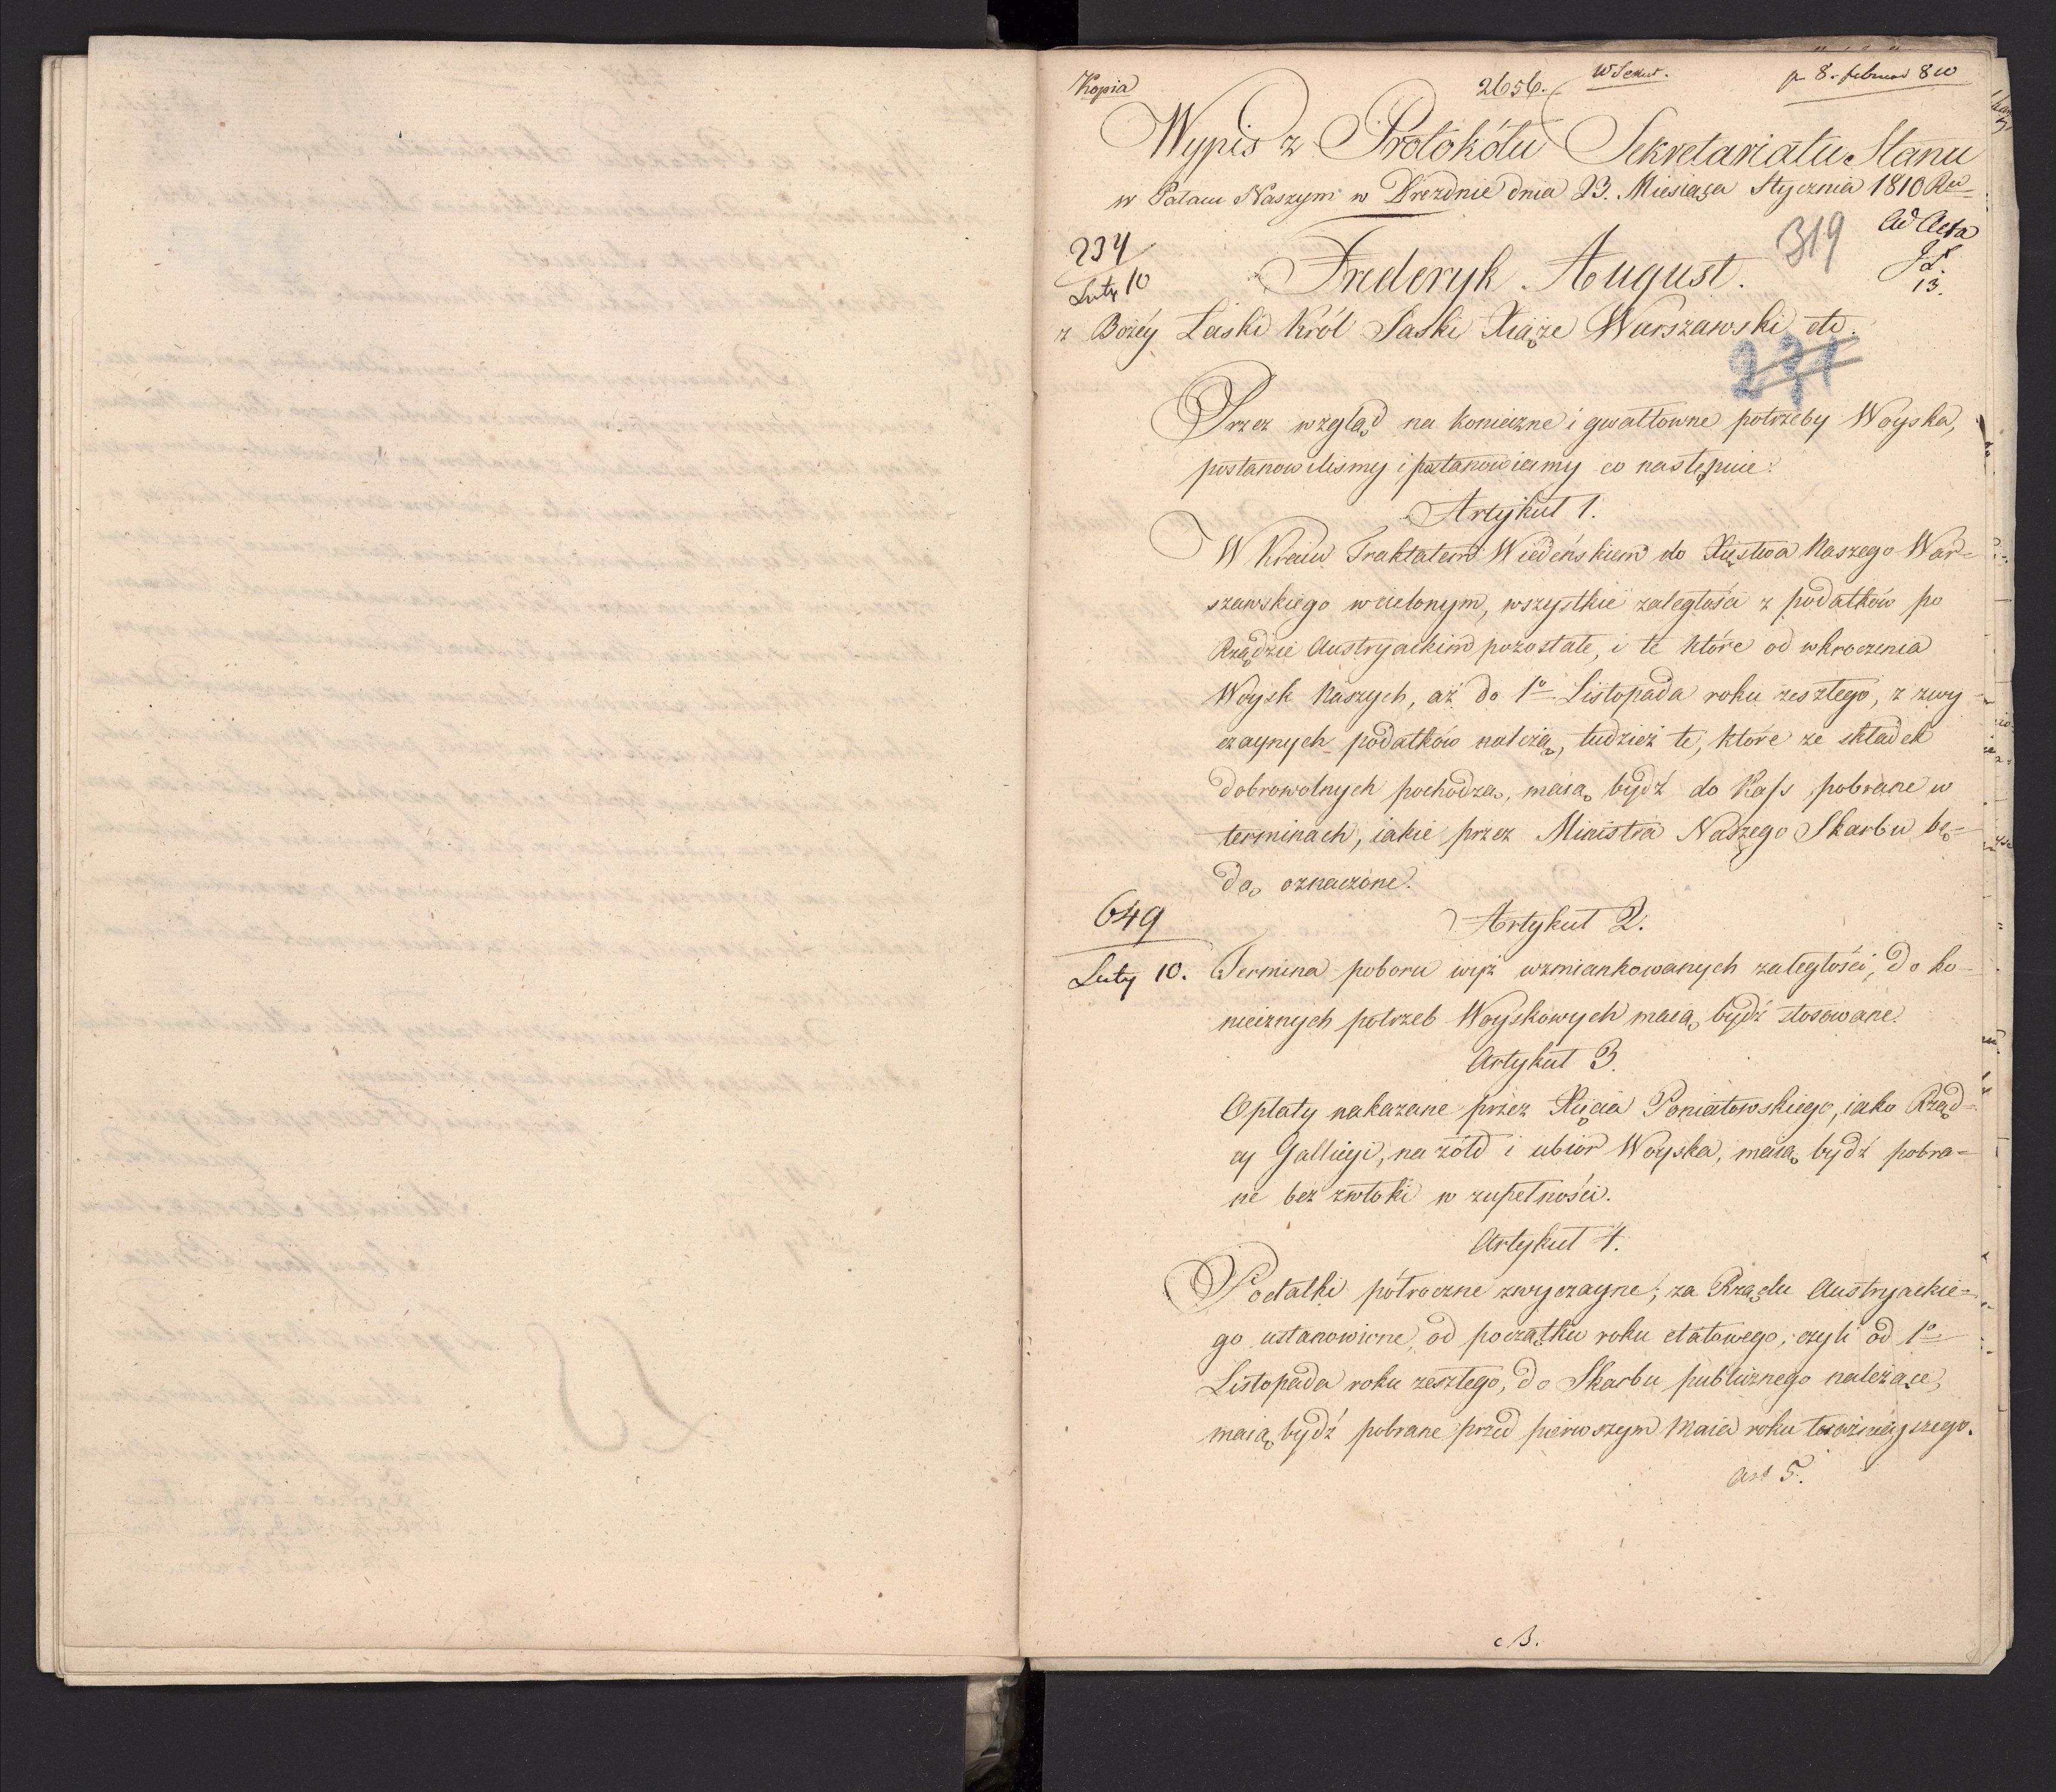 Kopia
2656.
W Sekret.
pr. 8. februar 810
Wypis z Protokółu Sekretariatu Stanu
w Pałacu Naszym w Dreznie dnia 23. Miesiąca Stycznia 1810 Ru
234
Luty 10
319
Ad Acta
13.
Frederyk August.
z Bożéy Łaski Król Saski Xiąże Warszawski etc.
Przez wzgląd na konieczne i gwałtowne potrzeby Woyska,
postanowilismy i postanowiamy co następuie:
Artykuł 1.
W Kraiu Traktatem Wiedeńskiem do Xięstwa Naszego War-
szawskiego wcielonym, wszystkie zaległości z podatków po
Rządzie Austryackim pozostałe, i te które od wkroczenia
Woysk Naszych, aż do 1o Listopada roku zeszłego, z zwy
czaynych podatków należą, tudzież te, które ze składek
dobrowolnych pochodzą, maią bydź do Kass pobrane w
terminach, iakie przez Ministra Naszego Skarbu bę-
dą oznaczone.
649
Luty 10.
Artykuł 2.
Termina poboru wyż wzmiankowanych zaległości, do ko-
niecznych potrzeb Woyskowych maią bydź stosowane.
Artykuł 3.
Opłaty nakazane przez Xięcia Poniatowskiego, iako Rząd-
cy Gallicyi, na żołd i ubiór Woyska, maią bydź pobra-
ne bez zwłoki w zupełności.
Artykuł 4.
Podatki półroczne zwyczayne, za Rządu Austryackie-
go ustanowione, od początku roku etatowego, czyli od 1o
Listopada roku zeszłego, do Skarbu publicznego należące,
maią bydź pobrane przed pierwszym Maia roku teraznieyszego.
Art 5.